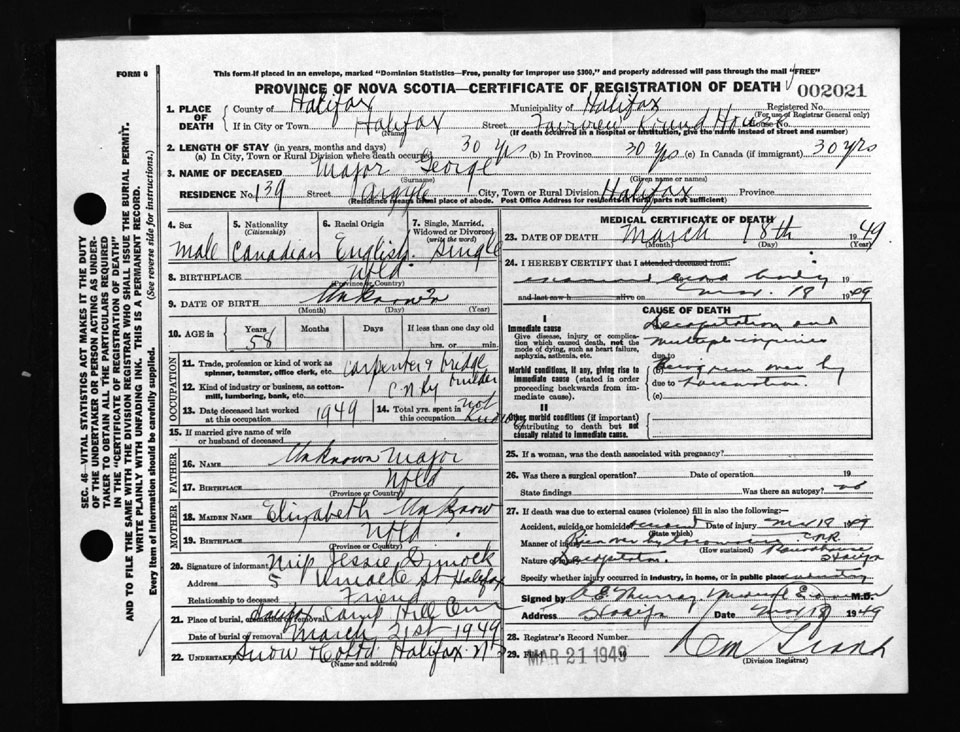 FORM 6
This form if placed in an envelope, marked "Dominion Statistics—Free, penalty for improper use $300," and properly addressed will pass through the mail "FREE"
PROVINCE OF NOVA SCOTIA—CERTIFICATE OF REGISTRATION OF DEATH
002021
1. PLACE OF DEATH
County of Halifax Municipality of Halifax Registered No.
(For use of Registrar General only)
If in City or Town Halifax Street Fairview Round House House No.
(Name) (If death occurred in a hospital or institution, give the name instead of street and number)
2. LENGTH OF STAY (in years, months and days)
(a) In City, Town or Rural Division where death occurred 30 yrs (b) In Province 30 yrs (c) In Canada (if immigrant) 30 yrs
3. NAME OF DECEASED Major George
(Surname) (Given name or names)
RESIDENCE No. 139 Street Argyle City, Town or Rural Division Halifax Province
(Residence means usual place of abode. Post Office Address for residents in rural parts not sufficient)
4. Sex Male
5. Nationality (Citizenship) Canadian
6. Racial Origin English
7. Single, Married, Widowed or Divorced (write the word) Single
8. BIRTHPLACE Nfld.
(Province or Country)
9. DATE OF BIRTH Unknown
(Month) (Day) (Year)
10. AGE in Years 58 Months Days If less than one day old
hrs. or min.
OCCUPATION
11. Trade, profession or kind of work as spinner, teamster, office clerk, etc. Carpenter & bridge builder
12. Kind of industry or business, as cotton-mill, lumbering, bank, etc. C N Ry
13. Date deceased last worked at this occupation 1949
14. Total yrs. spent in this occupation not known
15. If married give name of wife or husband of deceased
FATHER
16. NAME Unknown Major
17. BIRTHPLACE Nfld
(Province or Country)
MOTHER
18. MAIDEN NAME Elizabeth Unknow
19. BIRTHPLACE Nfld.
(Province or Country)
20. Signature of informant Jessie Dimock
Address 5 St Halifax
Relationship to deceased Friend
21. Place of burial, cremation or removal Halifax Camp Hill Cem
Date of burial or removal March 21st 1949
22. Undertaker Snow & Co Ltd Halifax N S
(Name and address)
MEDICAL CERTIFICATE OF DEATH
23. DATE OF DEATH March 18th 1949
(Month) (Day) (Year)
24. I HEREBY CERTIFY that I attended deceased from:
examined dead body 19
and last saw h alive on Mar. 18 1949
CAUSE OF DEATH
I
Immediate cause
Give disease, injury or complication which caused death, not the mode of dying, such as heart failure, asphyxia, asthenia, etc.
Decapitation and
multiple injuries
due to
Morbid conditions, if any, giving rise to immediate cause (stated in order proceeding backwards from immediate cause).
Being run over by
due to locomotive
(c)
II
Other morbid conditions (if important) contributing to death but not causally related to immediate cause.
25. If a woman, was the death associated with pregnancy?
26. Was there a surgical operation? Date of operation 19
State findings Was there an autopsy? no
27. If death was due to external causes (violence) fill in also the following:
Accident, suicide or homicide? Date of injury Mar 18 1949
(State which)
Manner of injury Run over by locomotive C.N.R.
(How sustained) Roundhouse
Nature of injury Decapitation Halifax
Specify whether injury occurred in industry, in home, or in public place industry
Signed by Murray Medical Examiner M.D.
Address Halifax Date Mar 18 1949
28. Registrar's Record Number
29. Filed MAR 21 1949
(Division Registrar)
SEC. 46—VITAL STATISTICS ACT MAKES IT THE DUTY
OF THE UNDERTAKER OR PERSON ACTING AS UNDERTAKER TO OBTAIN ALL THE PARTICULARS REQUIRED
IN THE "CERTIFICATE OF REGISTRATION OF DEATH"
AND TO FILE THE SAME WITH THE DIVISION REGISTRAR WHO SHALL ISSUE THE BURIAL PERMIT.
WRITE PLAINLY WITH UNFADING INK. THIS IS A PERMANENT RECORD.
Every item of information should be carefully supplied. (See reverse side for instructions.)